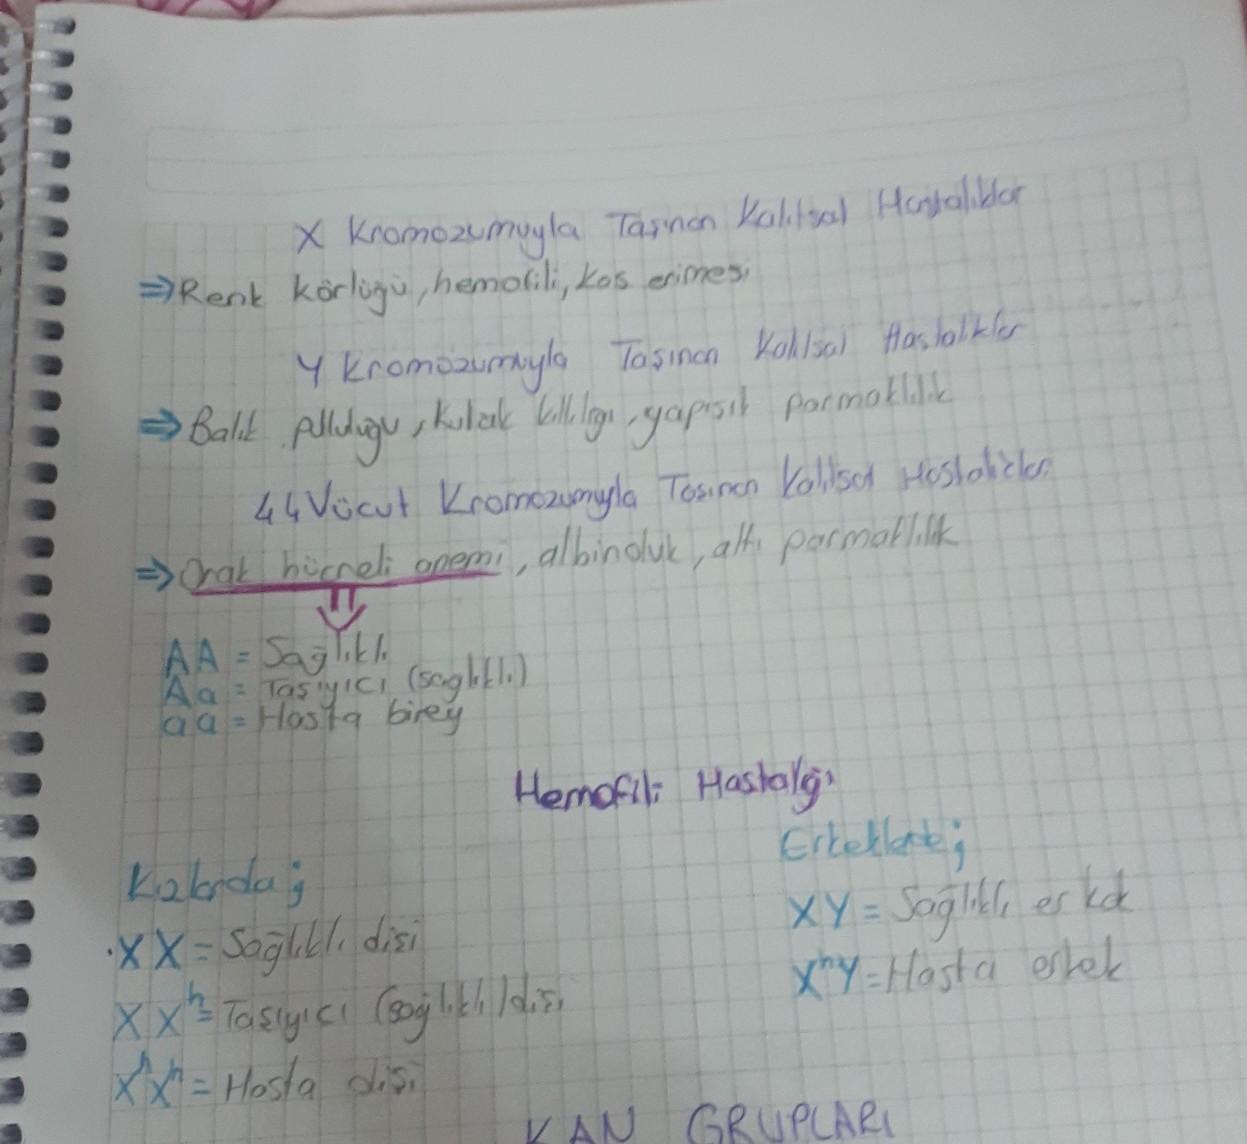 X Kromozumuyla Taşınan Kalıtsal Hastalıklar
⇒ Renk körlüğü, hemofili, kas erimesi
Y Kromozumuyla Taşınan Kalıtsal Hastalıklar
⇒ Balık pulluluğu, kulak kıllılığı, yapışık parmaklılık
44 Vücut Kromozumuyla Taşınan Kalıtsal Hastalıklar
⇒ Orak hücreli anemi, albinoluk, altı parmaklılık
AA = Sağlıklı
Aa = Taşıyıcı (sağlıklı)
aa = Hasta birey
Hemofili Hastalığı
Kızlarda;
XX = Sağlıklı dişi
XXʰ = Taşıyıcı (sağlıklı) dişi
XʰXʰ = Hasta dişi
Erkeklerde;
XY = Sağlıklı erkek
XʰY = Hasta erkek
KAN GRUPLARI